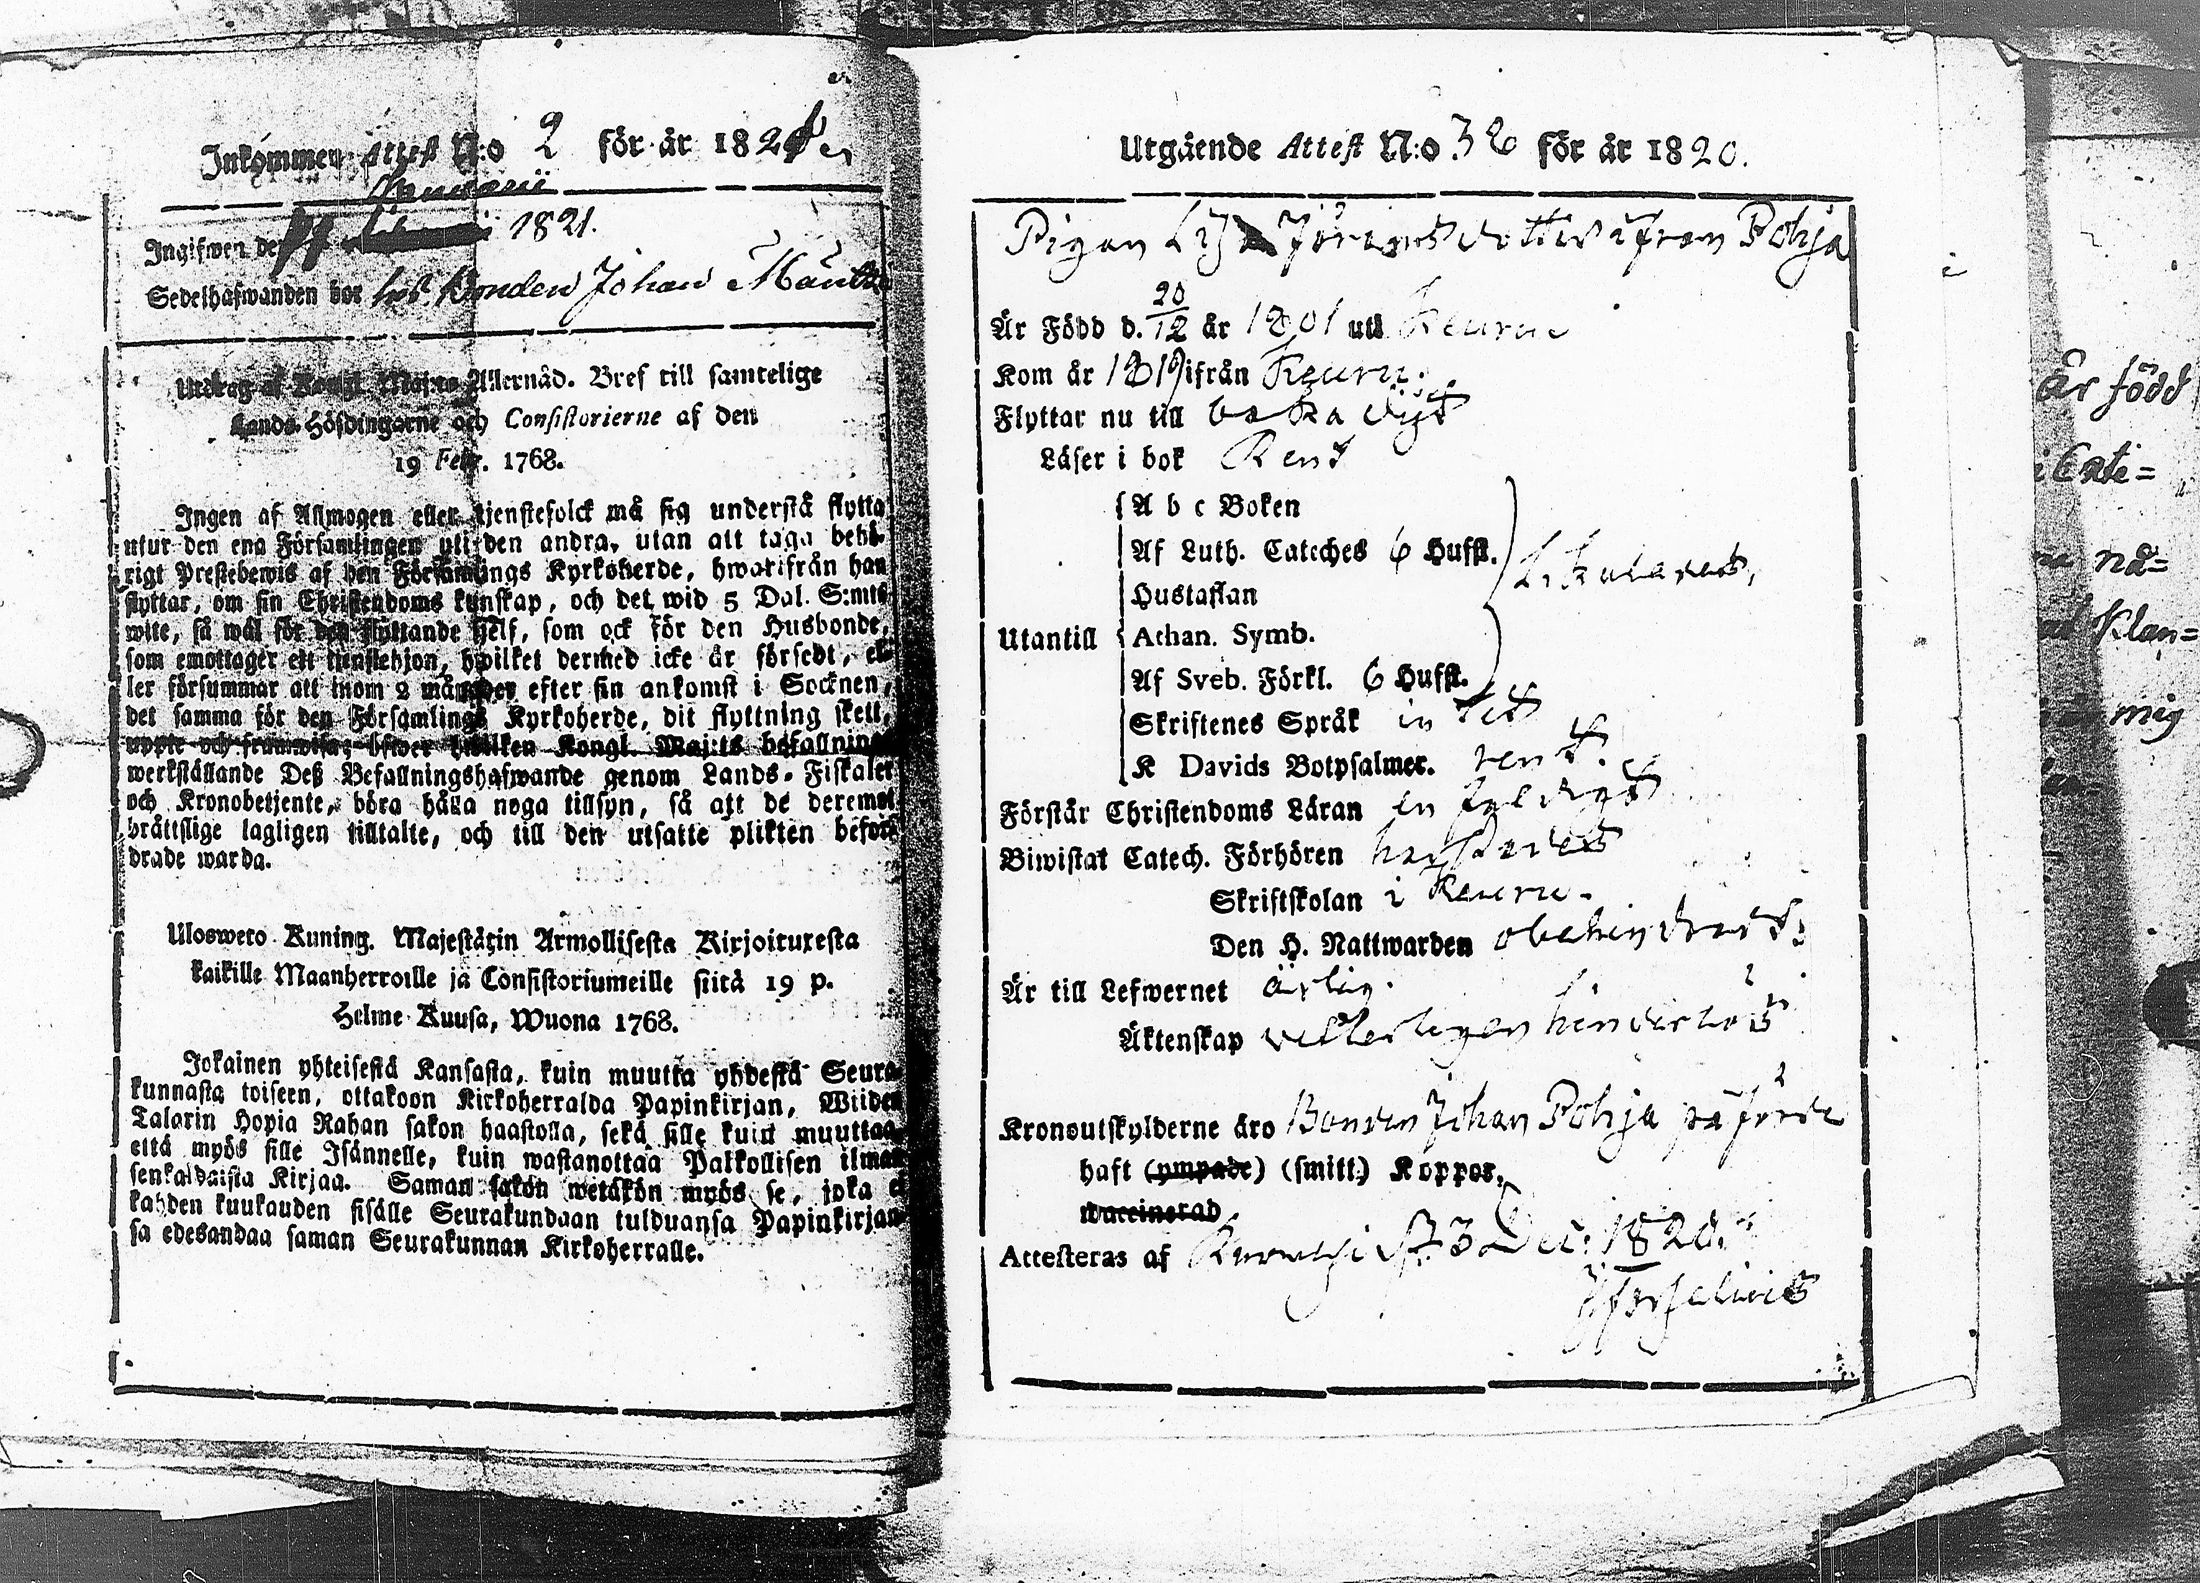 Inkommen Attest N:o 2 för år 1821
Januarii
Ingifwen den 1821.
Sedelhafwanden bor hos Bonden Johan
Utdrag af Kongl. Maj:ts Allernåd. Bref till samtelige
Lands-Höfdingarne och Consistorierne af den
19 Febr. 1768.
Ingen af Allmogen eller tjenstefolck må sig understå flytta
utur den ena Församlingen uti den andra, utan att taga behö-
rigt Prestebewis af den Församlings Kyrkoherde, hwarifrån han
flyttar, om sin Christendoms kunskap, och det wid 5 Dal. S:mts
wite, så wäl för den flyttande sielf, som ock för den Husbonde,
som emottager ett tienstehjon, hwilket dermed icke är försedt, el-
ler försummar att inom 2 månader efter sin ankomst i Socknen,
det samma för den Församlings Kyrkoherde, dit flyttning skett,
uppte och framwisa; öfwer hwilken Kongl. Maj:ts befallnings
werkställande Deß Befallningshafwande genom Lands-Fiskaler
och Kronobetjente, böra hålla noga tillsyn, så att de deremot
brättslige lagligen tilltalte, och till den utsatte plikten befor-
drade warda.
Ulosweto Kuning. Majestätin Armollisesta Kirjoituxesta
kaikille Maanherroille ja Consistoriumeille siitä 19 p.
Helme-Kuusa, Wuona 1768.
Jokainen yhteisestä Kansasta, kuin muutta yhdestä Seura-
kunnasta toiseen, ottakoon Kirkoherralda Papinkirjan, Wiiden
Talarin Hopia Rahan sakon haastolla, sekä sille kuin muuttaa,
että myös sille Isännelle, kuin wastanottaa Palkollisen ilman
senkaldaista Kirjaa. Saman sakon wetäkön myös se, joka ei
kahden kuukauden sisälle Seurakundaan tulduansa Papinkirjan-
sa edesandaa saman Seurakunnan Kirkoherralle.
Utgående Attest N:o 36 för år 1820.
Pigan Lisa Jöransdotter ifrån Pohja
Är Född d. 20/12 år 1801 uti Keuru
Kom år 1819 ifrån Keuru.
Flyttar nu till baka dijt
Läser i bok Rent
Utantill
A b c Boken
Af Luth. Cateches 6 Hufst.
Hustaflan
Athan. Symb.
Af Sveb. Förkl. 6 Hufst.
Skriftenes Språk intet
K Davids Botpsalmer. rent.
Förstår Christendoms Läran
Biwistat Catech. Förhören
Skriftskolan i Keuru.
Den H. Nattwarden obehindradt
Är till Lefwernet ärlig.
Äktenskap veterligen hinderlös
Kronoutskylderne äro Bonden Johan Pohja påförde
haft (ympade) (smitt.) Koppor.
waccinerad
Attesteras af 3 Dec. 1820.
är född
mig